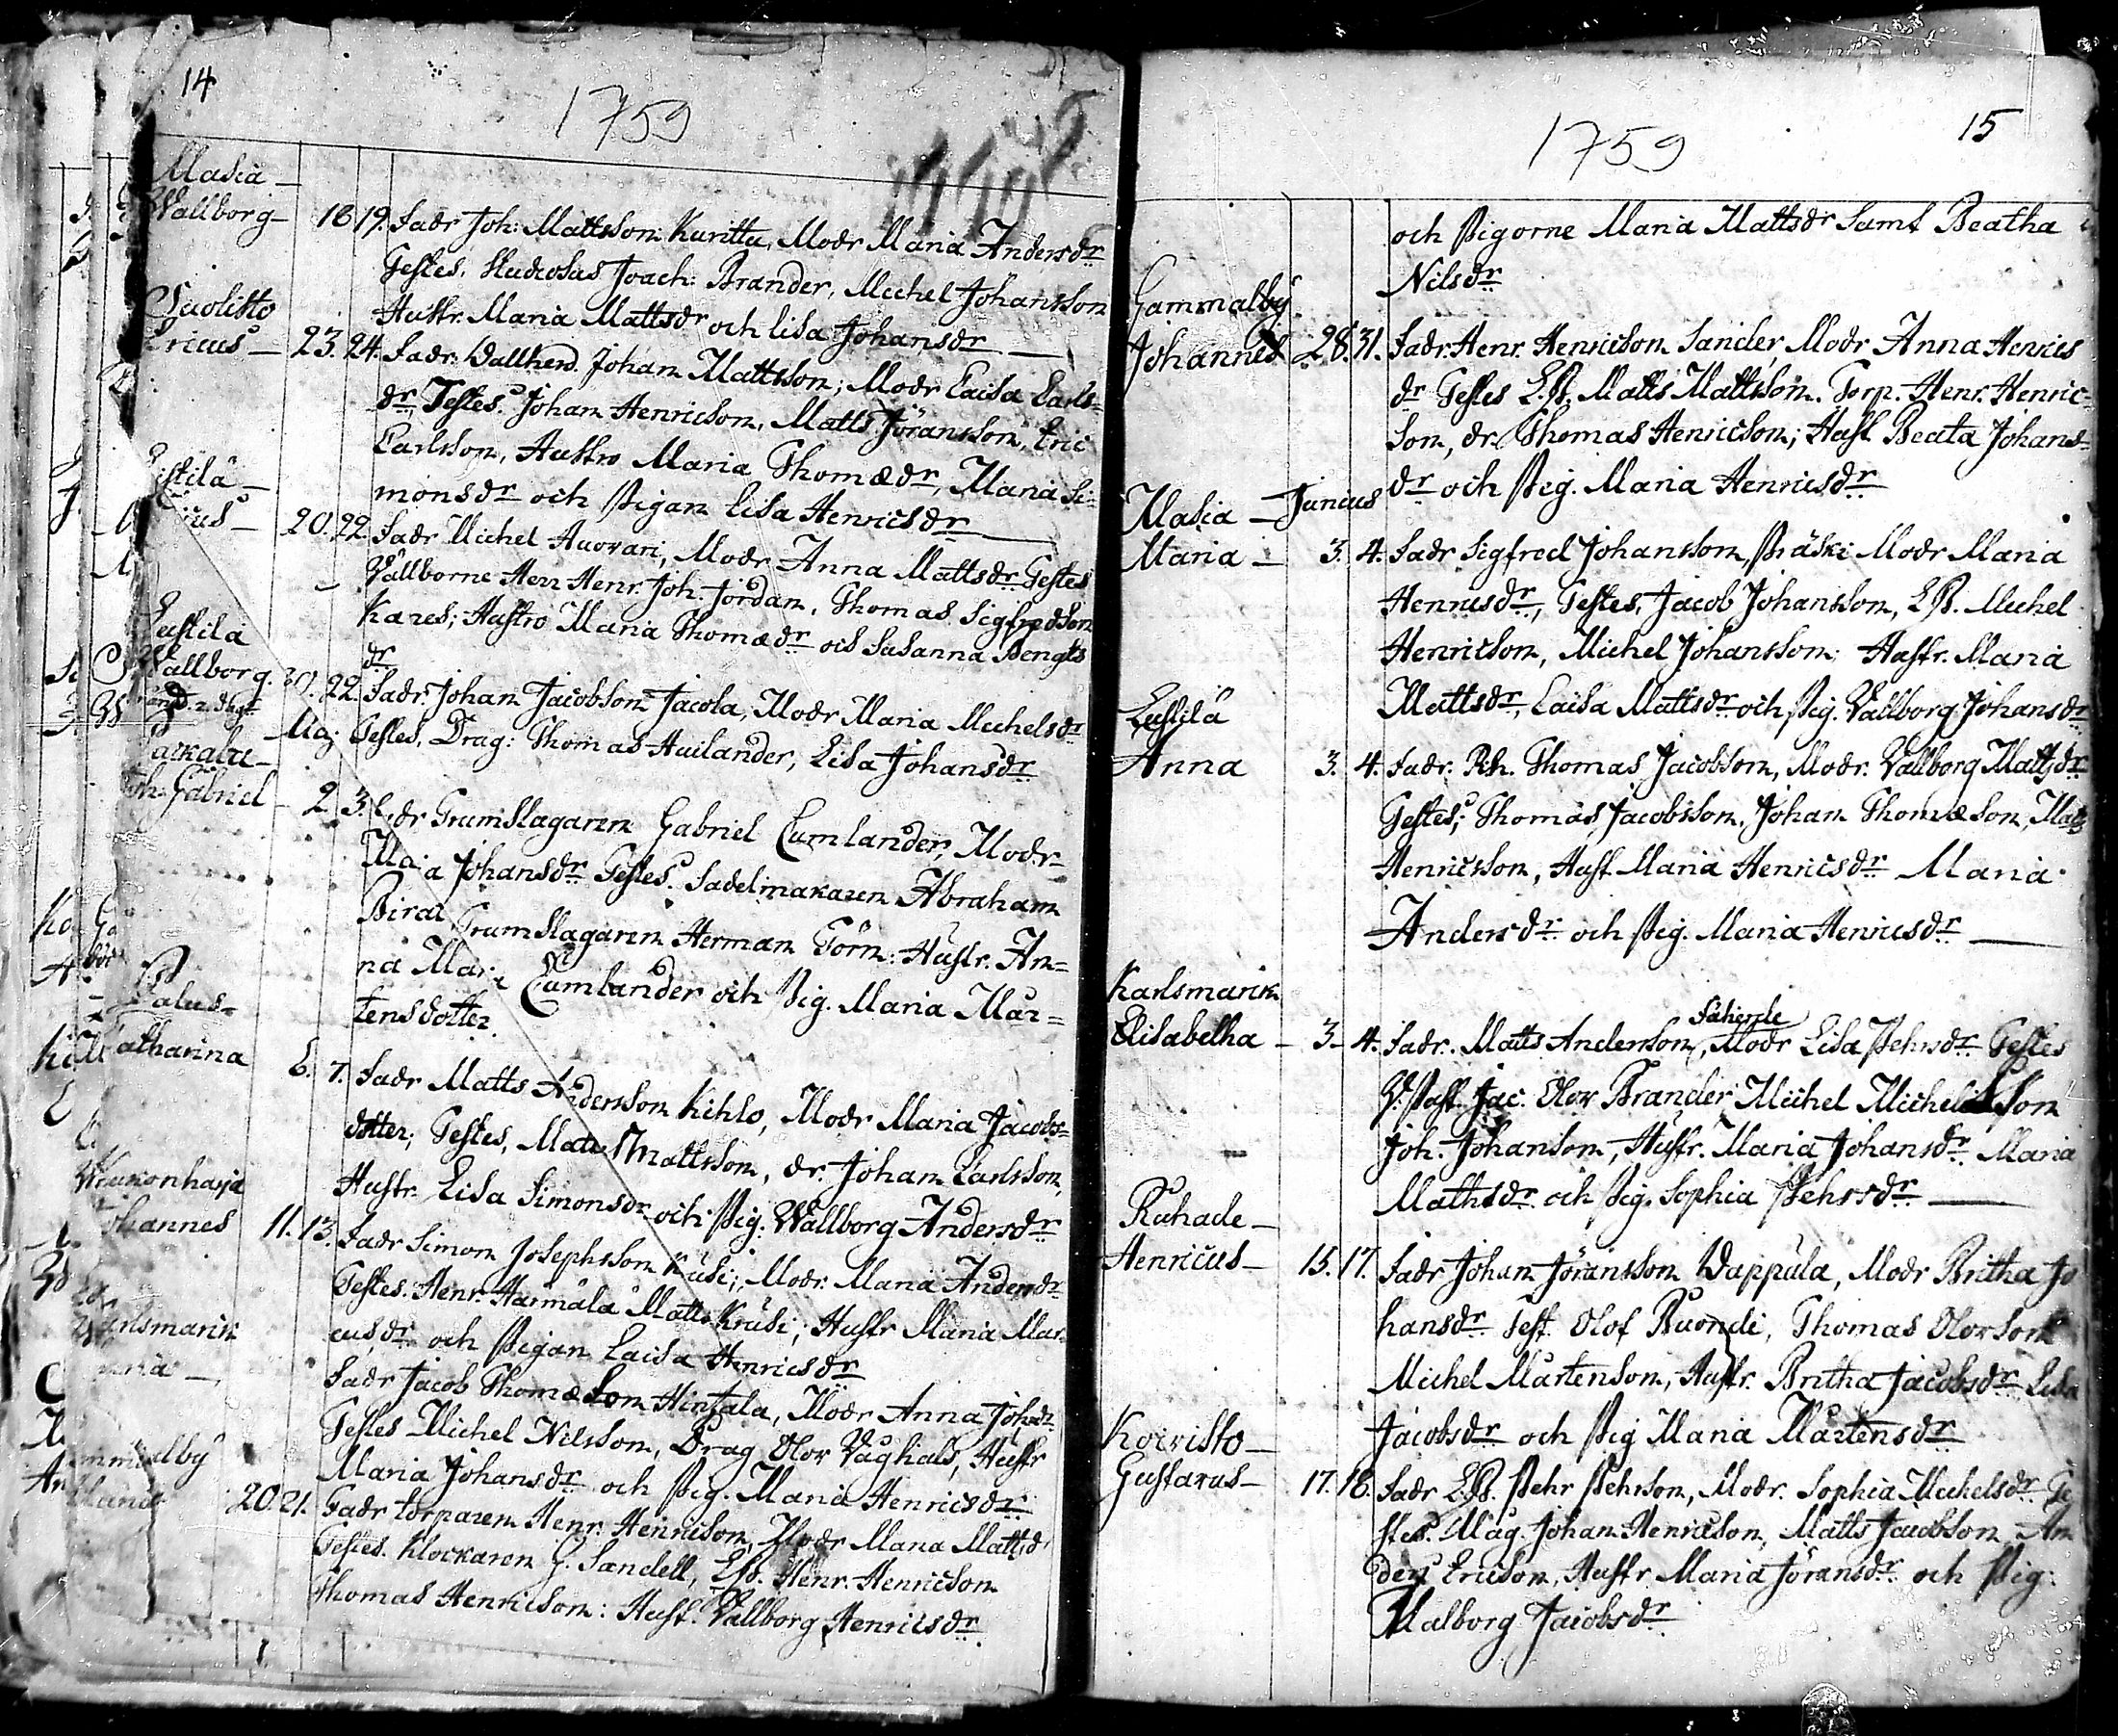 14
1759
Masia
Wallborg 18 19. Fadr Joh: Mattsson Kuritta, Modr Maria Andersdr
Testes. Studiosus Joach: Brander, Michel Johansson
Hustr. Maria Mattsdr och Lisa Johansdr
Suolitto
Ericus 23. 24. Fadr. Vallherd. Johan Mattsson; Modr Caisa Carls=
dr Testes. Johan Henricson, Matts Jöransson, Eric
Carlsson, Hustro Maria Thomædr, Maria Si=
monsdr och Pigan Lisa Henricsdr
20. 22. Fadr Michel Auovari, Modr Anna Mattsdr Testes
Vällborne Herr Henr. Joh. Jordan, Thomas Sigfredson
Kares; Hustro Maria Thomædr och Susanna Bengts
dr
Eustila
Wallborg. 30. 22. Fadr. Johan Jacobsson Jacola, Modr Maria Michelsdr
Maj. Testes, Drag: Thomas Huilander, Lisa Johansdr
Joh. Gabriel 2 3. Fadr Trumslagaren Gabriel Cumlander, Modr
Maria Johansdr Testes. Sadelmakaren Abraham
Trumslagaren Herman Törn: Hustr. An=
na Cumlander och Pig. Maria Mar=
tensdotter.
Palus
Catharina 6. 7. Fadr Matts Andersson Kihlo, Modr Maria Jacobs=
dotter; Testes, Matts Mattsson, dr. Johan Carlsson,
Hustr. Lisa Simonsdr och Pig. Wallborg Andersdr
Johannes 11. 13. Fadr Simon Josephsson Kusi; Modr. Maria Andersdr
Testes. Henr. Harmala Matts Krusi; Hustr Maria Mar
cusdr och Pigan Caisa Henricsdr
Karlsmarik
Fadr Jacob Thomæson Hintala, Modr Anna Johsdr
Testes Michel Nilsson, Drag Olov Vaghals, Hustr
Maria Johansdr och Pig. Maria Henricsdr
Gammalby
20 21. Fadr torparen Henr. Henricson, Modr Maria Mattsd
Testes. Klockaren G. Sandell, LB. Henr. Henricson
Thomas Henricson: Hust. Vallborg Henricsdr
15
1759
och Pigorne Maria Mattsdr Samt Beatha
Nilsdr
Gammalby
Johannes 28. 31. Fadr. Henr. Henricson Sander, Modr Anna Henrics
dr Testes L.B. Matts Mattsson. Torp. Henr. Henric=
son, dr. Thomas Henricson; Hust Beata Johans=
dr och Pig. Maria Henricsdr
Masia Junius
Maria 3. 4. Fadr Sigfred Johansson Präski Modr Maria
Henricsdr, Testes, Jacob Johansson, LB. Michel
Henricson, Michel Johansson; Hustr. Maria
Mattsdr, Caisa Mattsdr och Pig. Vallborg Johansdr
Eustilä
Anna 3. 4. Fadr. Rh. Thomas Jacobson, Modr. Vallborg Mattsdr
Testes; Thomas Jacobsson, Johan Thomæson, Matts
Henricsson, Hust Maria Henricsdr Maria
Andersdr och Pig. Maria Henricsdr
Karlsmarik
Elisabetha 3. 4. Fadr. Matts Anderson, Modr Lisa Pehrsdr Testes
V. Past. Jac. Olov Brander Michel Michelsson
Joh. Johanson, Hustr. Maria Johansdr Maria
Mathsdr och Pig. Sophia Pehrsdr
Ruhade
Henricus 15. 17. Fadr Johan Jöransson Vappula, Modr Britha Jo
hansdr Test. Olof Ruondi, Thomas Olovson
Michel Martenson, Hustr. Britha Jacobsdr Lisa
Jacobsdr och Pig Maria Martensdr
Koivisto
Gustavus 17. 18. Fadr LB. Pehr Pehrson, Modr. Sophia Michelsdr. Te
stes. Mag. Johan Henricson, Matts Jacobson An
ders Ericson, Hustr Maria Jöransdr och Pig:
Walborg Jacobsdr